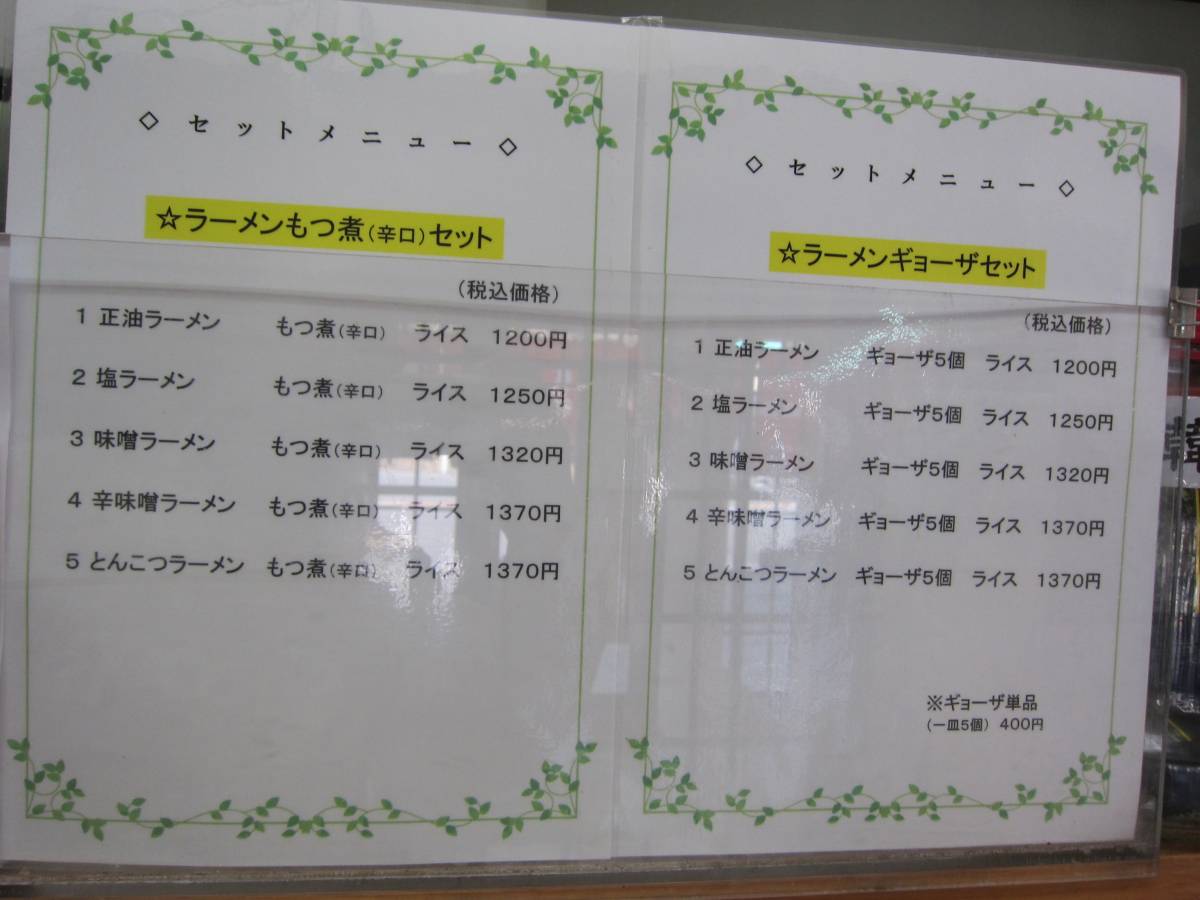 ◇ セットメニュー ◇
☆ラーメンもつ煮(辛口)セット
(税込価格)
1 正油ラーメン もつ煮(辛口) ライス 1200円
2 塩ラーメン もつ煮(辛口) ライス 1250円
3 味噌ラーメン もつ煮(辛口) ライス 1320円
4 辛味噌ラーメン もつ煮(辛口) ライス 1370円
5 とんこつラーメン もつ煮(辛口) ライス 1370円
◇ セットメニュー ◇
☆ラーメンギョーザセット
(税込価格)
1 正油ラーメン ギョーザ5個 ライス 1200円
2 塩ラーメン ギョーザ5個 ライス 1250円
3 味噌ラーメン ギョーザ5個 ライス 1320円
4 辛味噌ラーメン ギョーザ5個 ライス 1370円
5 とんこつラーメン ギョーザ5個 ライス 1370円
※ギョーザ単品
(一皿5個) 400円